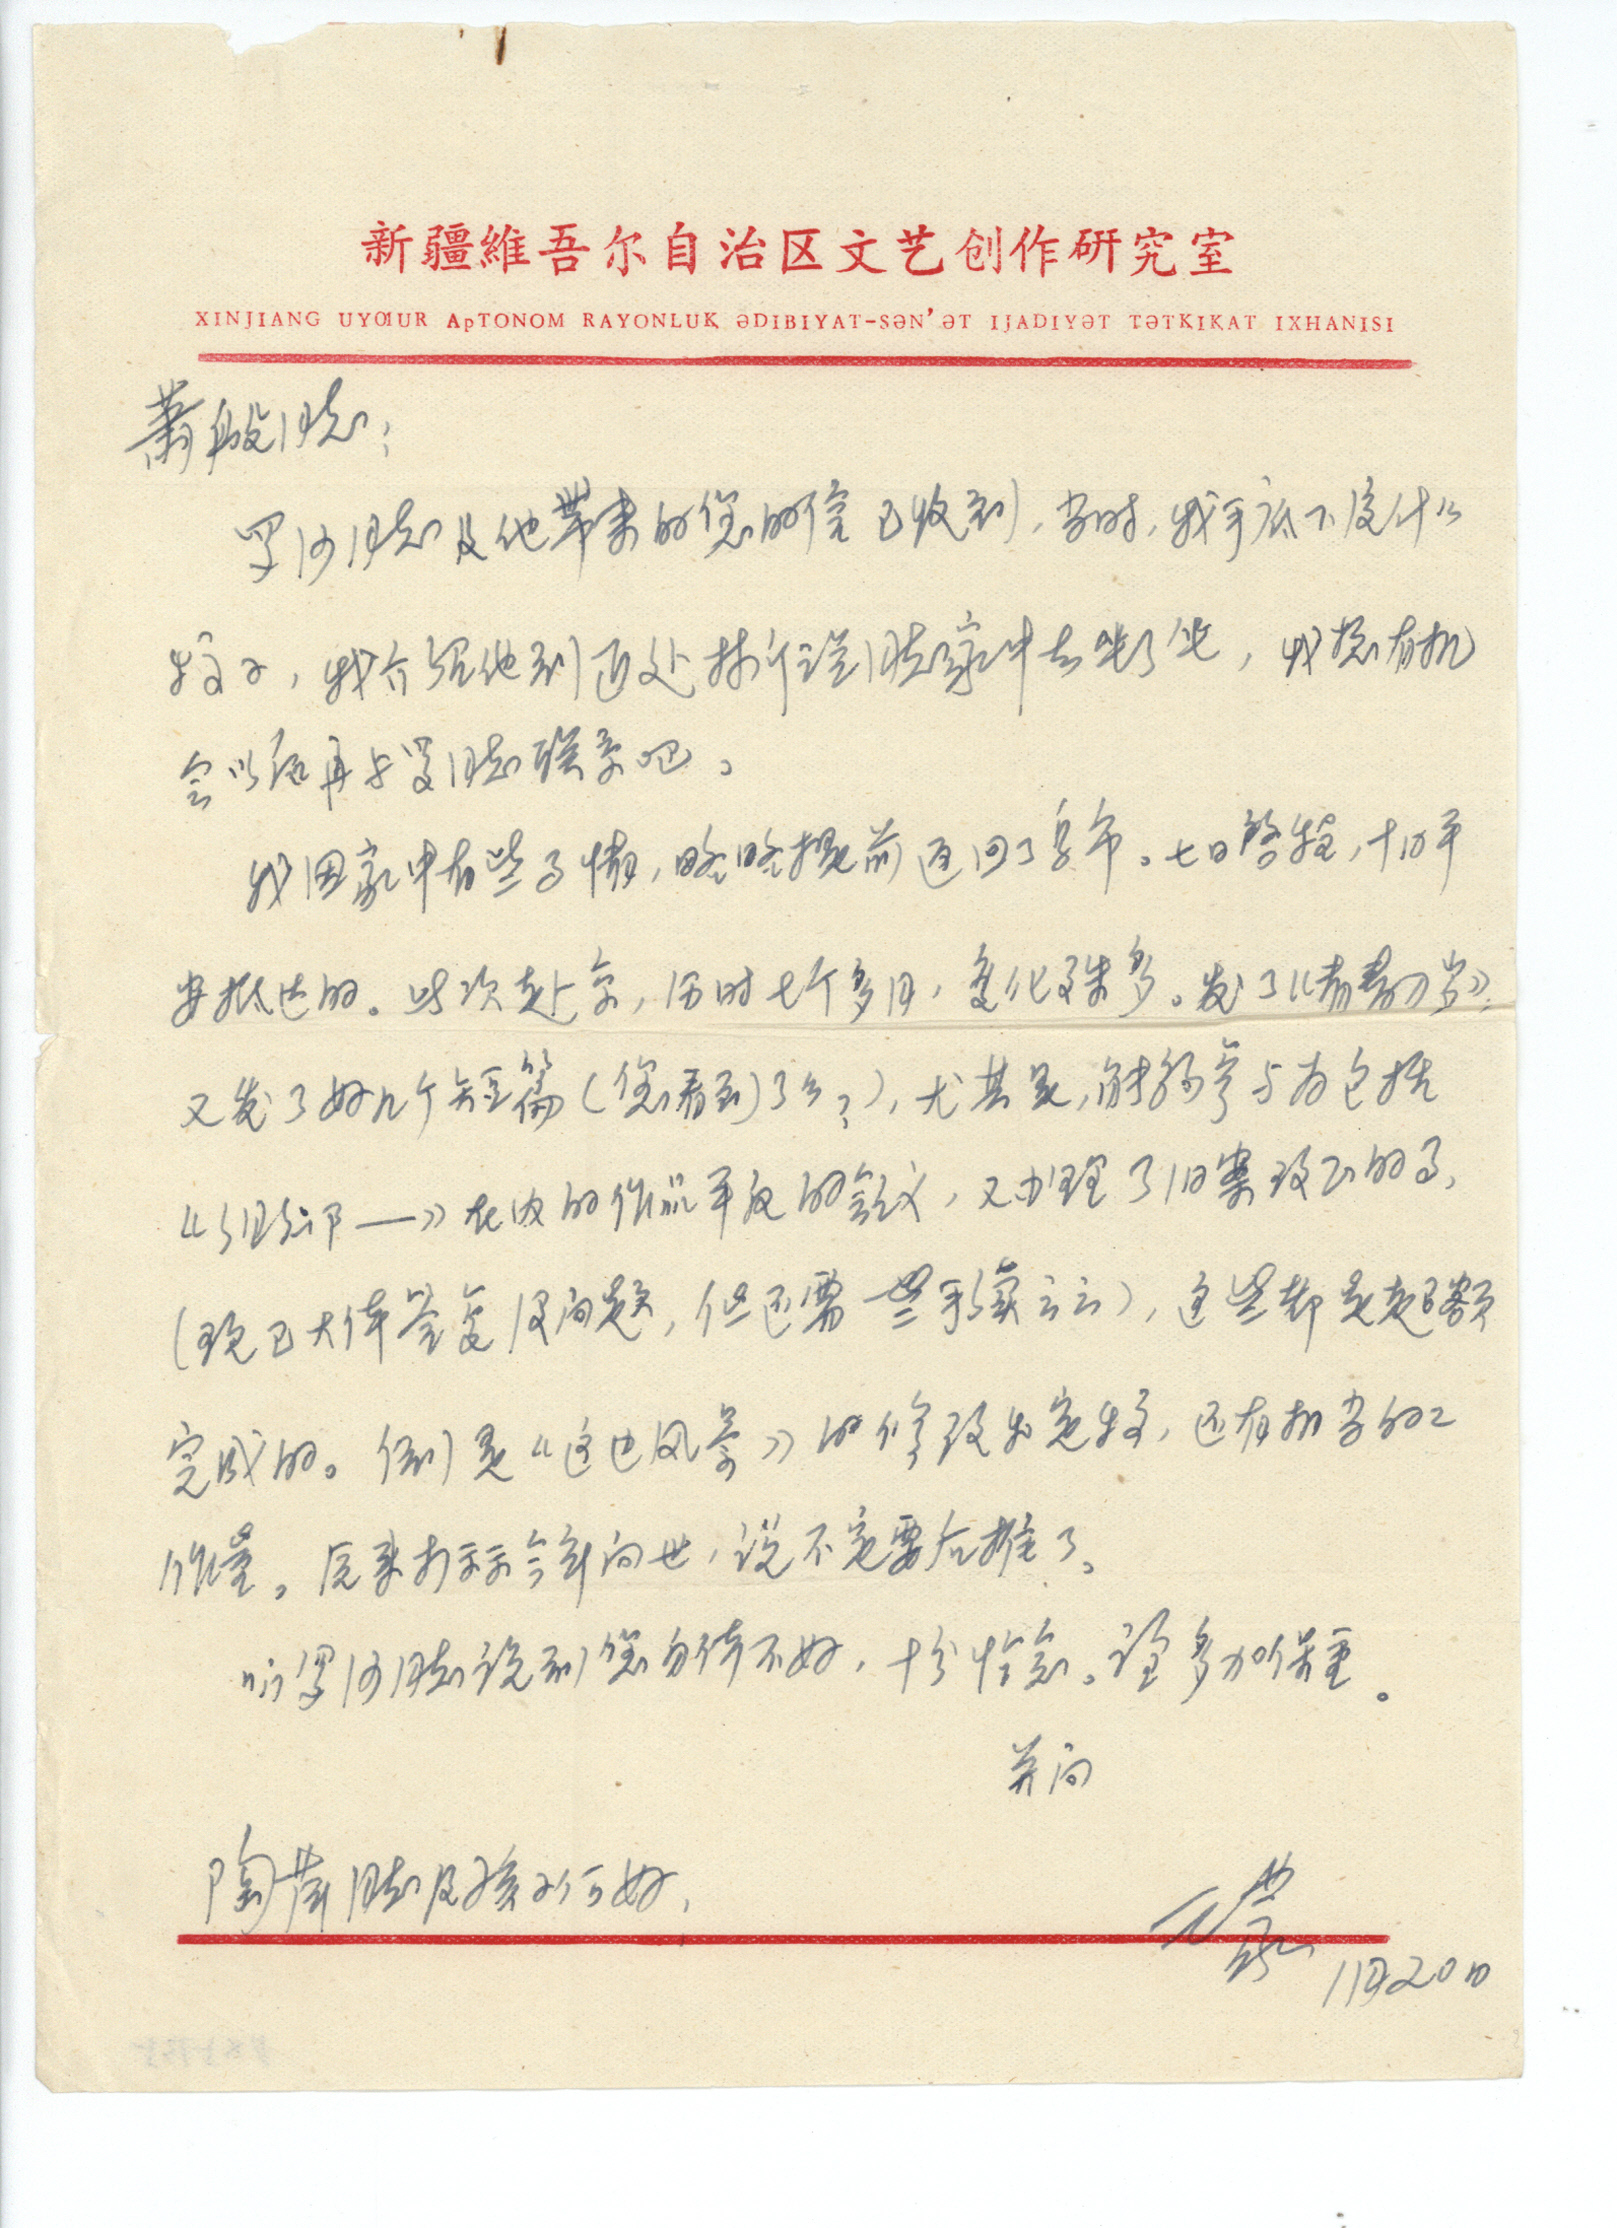 新疆維吾尔自治区文艺创作研究室
XINJIANG UYƢUR APTONOM RAYONLUK ƏDIBIYAT-SƏN'ƏT IJADIYƏT TƏTKIKAT IXHANISI
萧殷同志：
罗沙同志及他带来的您的信已收到，当时，我手底下没什么
稿子，我介绍他到近处林斤澜同志家中去坐了坐，我想有机
会以后再与罗同志联系吧。
我因家中有些事情，略略提前返回了乌市。七日启程，十日平
安抵达的。此次赴京，历时七个多月，变化殊多。发了《青春万岁》，
又发了好几个短篇（您看到了么？），尤其是，能够参与为包括
《组织部——》在内的作品平反的会议，又办理了旧案改正的事，
（现已大体答复没问题，但还需一些手续云云），这些都是超额
完成的。倒是《这边风景》的修改和定稿，还有相当的工
作量。原来打算今年问世，说不定要后推了。
听罗沙同志说到您身体不好，十分惦念。请多加保重。
并问
陶萍同志及孩子们好，
王蒙
11月20日